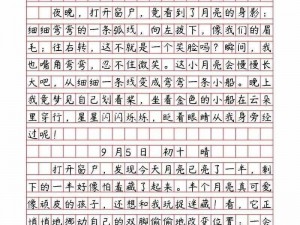 夜晚，打开窗户，竟看到了月亮的身影：
细细弯弯的一条弧线，向左拨下，像我们的眉
毛，往右转，这不就是一个笑脸吗？瞬间，我
也嘴角弯弯笑起来。这小月亮会慢慢长
大吧，从细细一条线变成弯弯一条小船。晚上
我竟梦见自己划着桨，坐着金色的小船在云朵
里穿行，星星闪闪烁烁，眨着眼睛从我身旁经
过呢！
9月5日 初十 晴
打开窗户，发现今天月亮已亮了一半，剩
下的一半好像怕羞藏了起来。半个月亮真可爱
像顽皮的孩子，还想和我玩捉迷藏。看，它正
悄悄地挪动自己的双脚偷偷地改变位置：一会